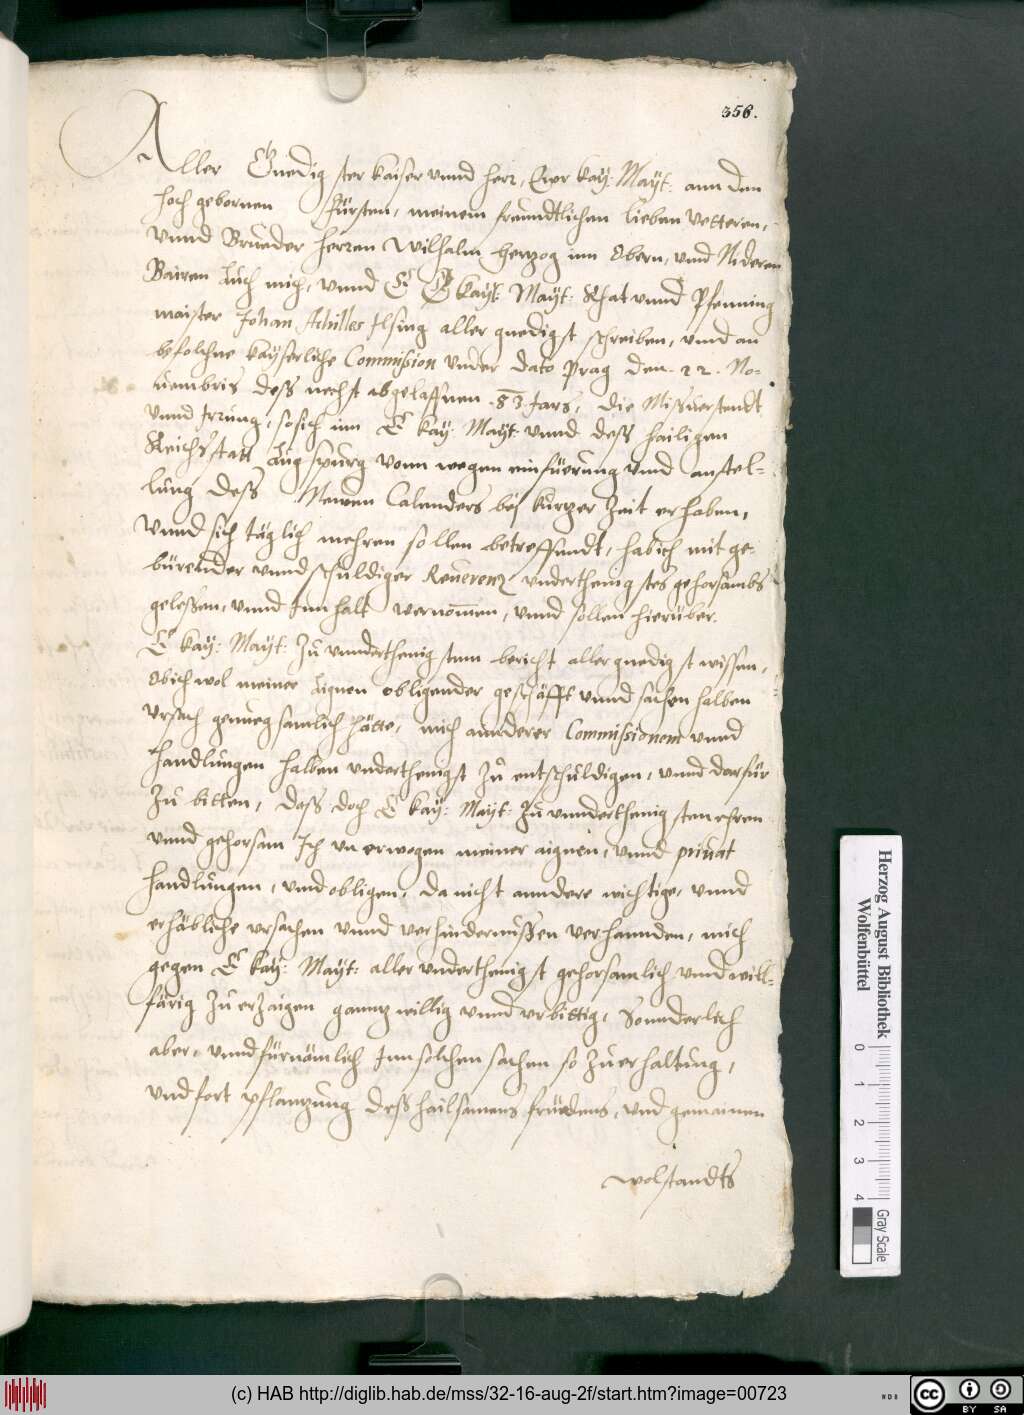 356.
Aller Gnedigster kaiser vnnd herr, Eur kay: Mayt: ann den
hochgebornen fürsten, meinem freundtlichen lieben Vetteren,
vnnd Brueder herren Wilhalm hertzog inn Obern, vnnd Nideren
Bairen Auch mich, vnnd E kayt: Mayt: Rhat vnnd Pfenning
maister Johan Achilles Ilsing aller gnedigst schreiben, vnnd an
befolchne kayserliche Commission vnder dato Prag den .22. No-
uembris dess nechst abgeloffnen .83. Jars, die Missuerstendt
vnnd Irrung, so sich inn E kay: Mayt: vnnd dess hailigen
Reichsstatt Augspurg vonn wegen einfüerung vnnd anstel-
lung dess Newen Calenders bej kurtzer Zeit erhaben,
vnnd sich täglich mehren sollen betreffendt, hab ich mit ge-
bürender vnnd schuldiger Reuerentz vnderthenigstes gehorsambs
gelessen, vnnd Innhalt vernommen, vnnd sollen hierüber.
E kay: Mayt: zu vnnderthenigstem bericht allergnedigst wissen,
Ob ich wol meiner Aignen obligender geschäfft vnnd sachen halben
vrsach genuegsamlich hätte, mich annderer Commissionen vnnd
handlungen halben vnderthenigst zu entschuldigen, vnnd darfür
zu bitten, dass doch E kay: Mayt: zu vnnderthenigsten ehren
vnnd gehorsam Ich vnerwogen meiner aignen, vnnd priuat
handlungen, vnnd obligen, da nicht anndere wichtige, vnnd
erhäbliche vrsachen vnnd verhindernussen verhannden, mich
gegen E kay: Mayt: aller vnderthenigst gehorsamlich vnnd will-
färig zu erzaigen ganntz willig vnnd vrbittig, Sonnderlich
aber, vnnd fürnämlich Inn solchen sachen so zu erhaltung,
vnd fortpflantzung dess hailsamens fridens, vnd gemainen
wolstandts
Herzog August Bibliothek
Wolfenbüttel
0 1 2 3 4
Gray Scale
(c) HAB http://diglib.hab.de/mss/32-16-aug-2f/start.htm?image=00723
WDB
cc BY SA